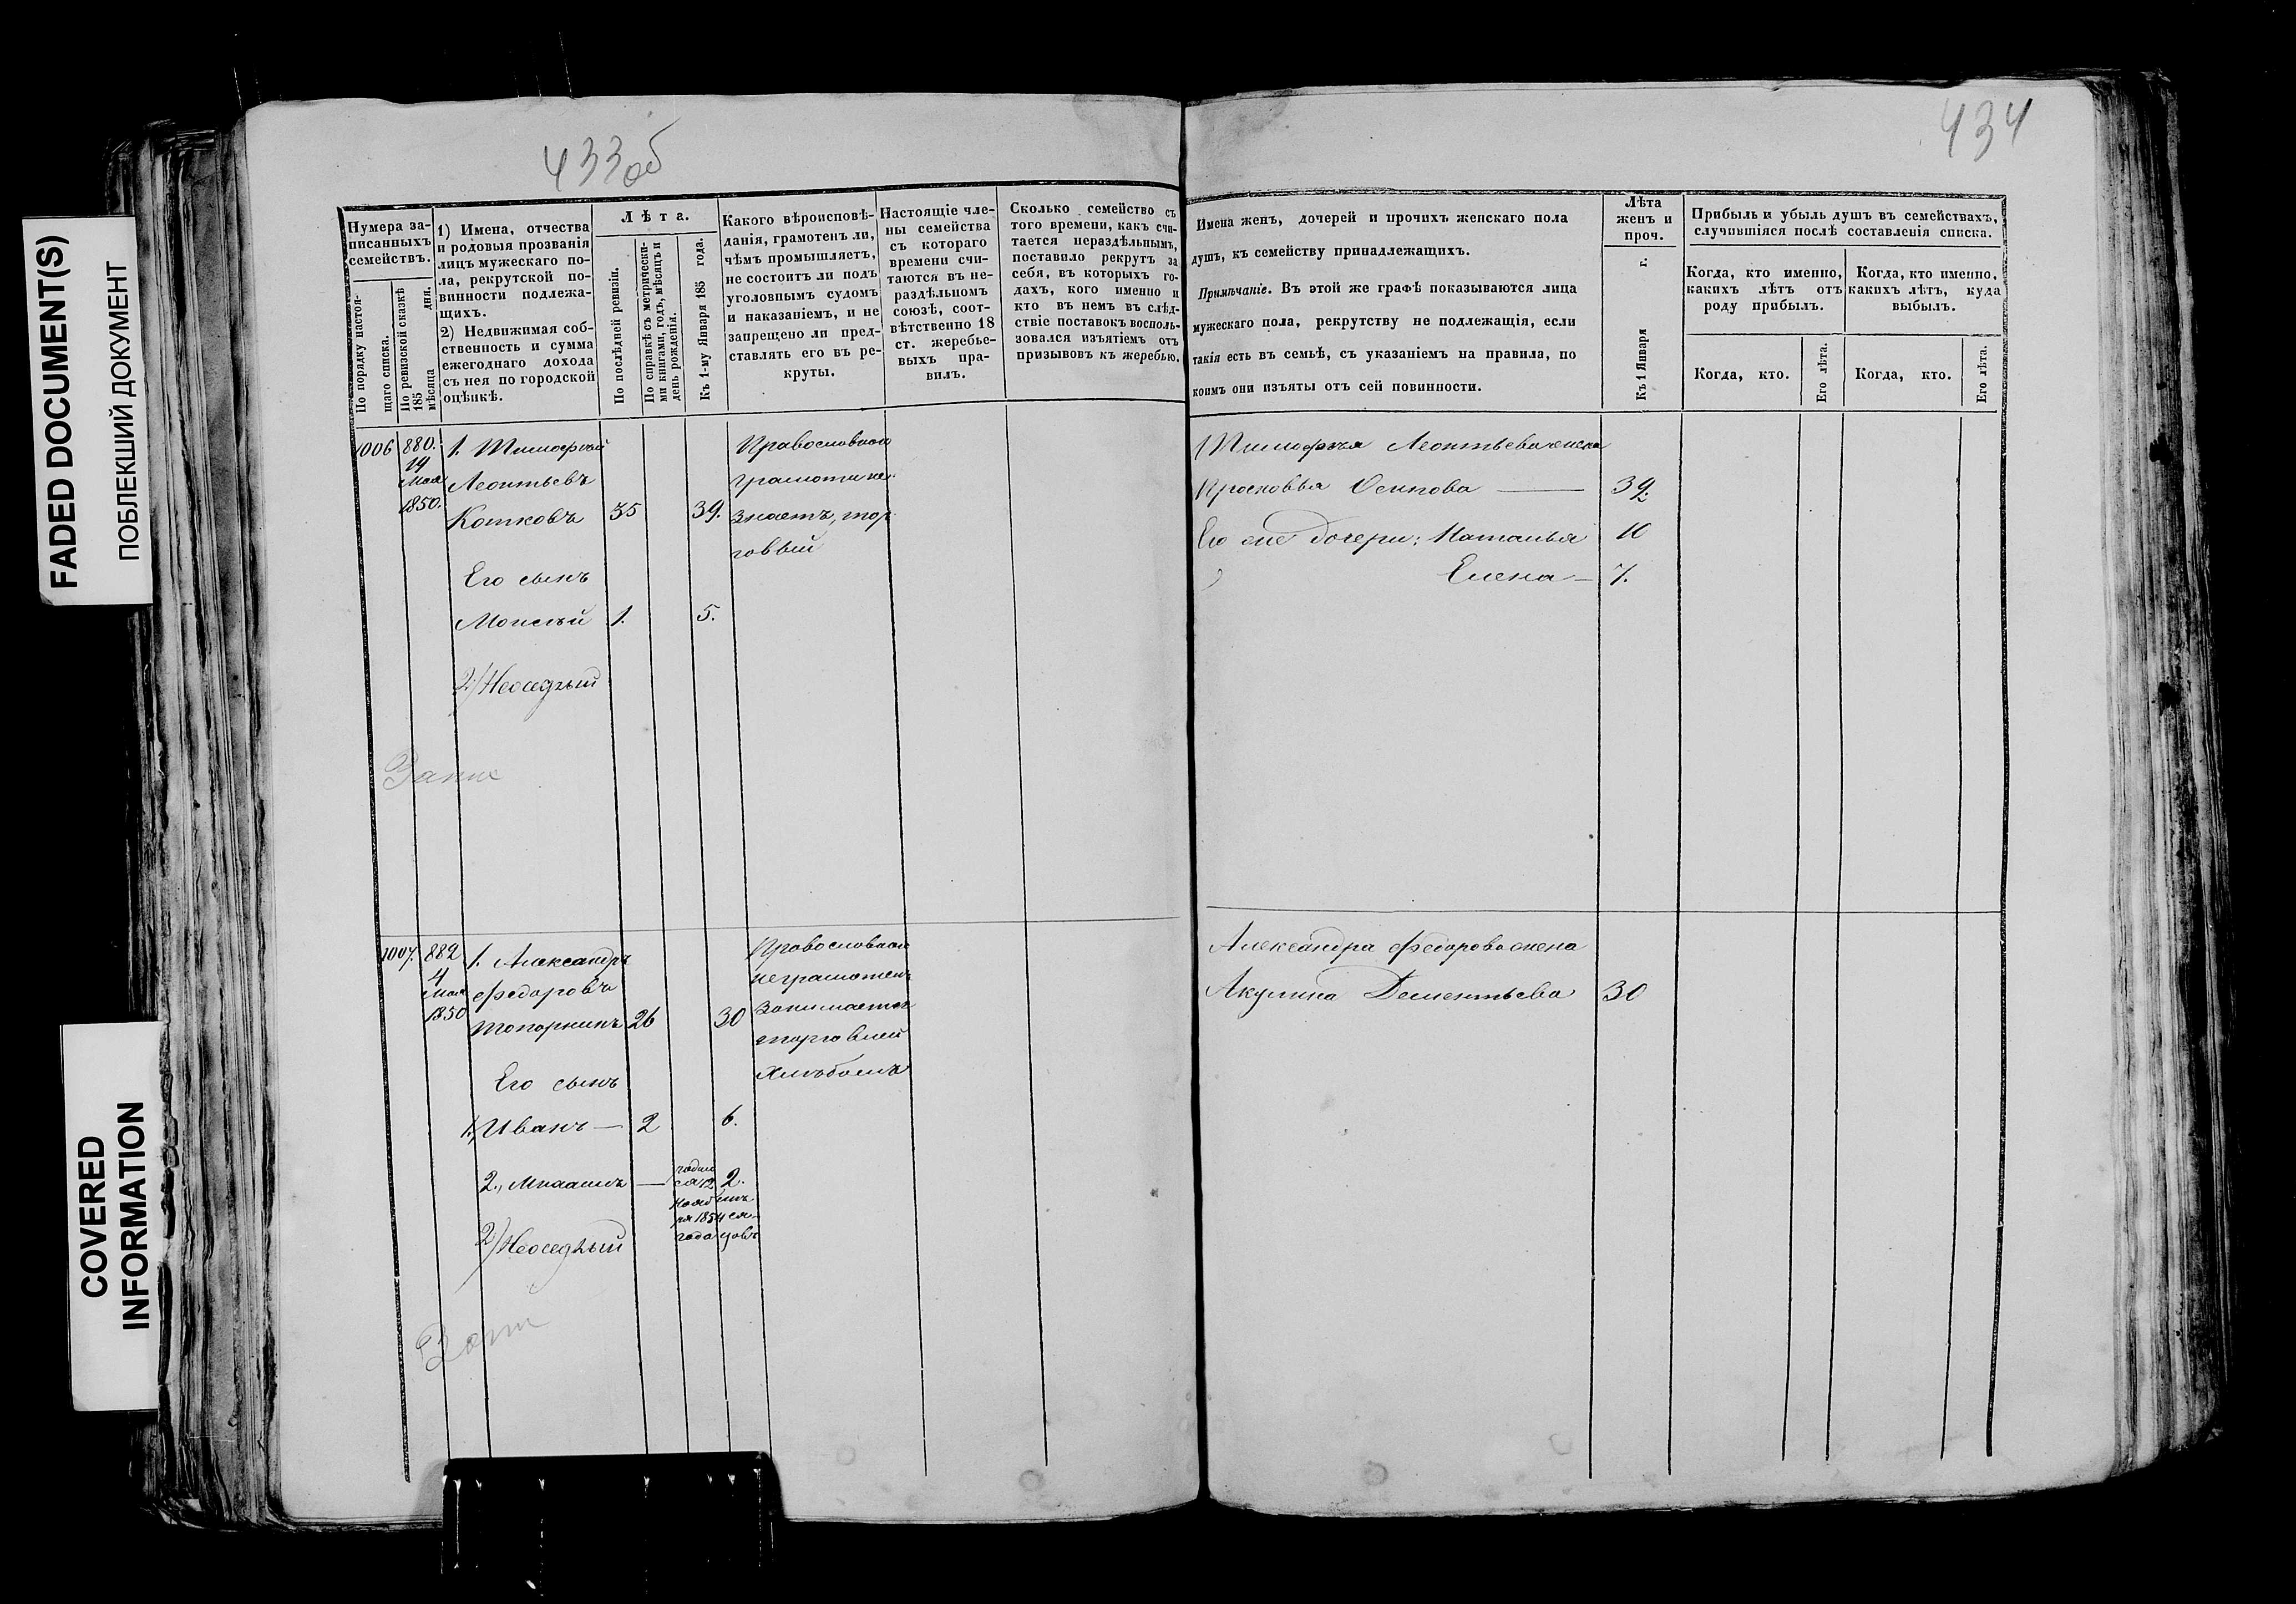 FADED DOCUMENT(S)
ПОБЛЕКШИЙ ДОКУМЕНТ
COVERED
INFORMATION
433об
Нумера за-
писанныхъ
семействъ.
По порядку настоя-
щаго списка.
По ревизской сказкѣ
185 мѣсяца дня.
1) Имена, отчества
и родовыя прозванія
лицъ мужескаго по-
ла, рекрутской по-
винности подлежа-
щихъ.
2) Недвижимая соб-
ственность и сумма
ежегоднаго дохода
съ нея по городской
оцѣнкѣ.
Лѣта.
По послѣдней ревизіи.
По справкѣ съ метрически-
ми книгами, годъ, мѣсяцъ и
день рожденія.
Къ 1-му Января 185 года.
Какого вѣроисповѣ-
данія, грамотенъ ли,
чѣмъ промышляетъ,
не состоитъ ли подъ
уголовнымъ судомъ
и наказаніемъ, и не
запрещено ли пред-
ставлять его въ ре-
круты.
Настоящіе чле-
ны семейства
съ котораго
времени счи-
таются въ не-
раздѣльномъ
союзѣ, соот-
вѣтственно 18
ст. жеребье-
выхъ пра-
вилъ.
Сколько семейство съ
того времени, какъ счи-
тается нераздѣльнымъ,
поставило рекрутъ за
себя, въ которыхъ го-
дахъ, кого именно и
кто въ немъ въ слѣд-
ствіе поставокъ восполь-
зовался изъятіемъ отъ
призывовъ къ жеребью.
1006 880.
14
Мая
1850.
1. Тимофѣй
Леонтьевъ
Котковъ 35 39.
Его сынъ
Моисѣй 1. 5.
2) Неоседлый
Православнаго
грамоти не
знаетъ, тор
говый
1007. 882
4
Мая
1850
1. Александръ
Федоровъ
Топоркинъ 26 30
Его сынъ
1, Иванъ — 2 6.
2., —
2.
года
2) Неоседлый
Православнаго
неграмотенъ
Занимается
торговлей
хлѣбомъ
434
Имена женъ, дочерей и прочихъ женскаго пола
душъ, къ семейству принадлежащихъ.
Примѣчаніе. Въ этой же графѣ показываются лица
мужескаго пола, рекрутству не подлежащія, если
такія есть въ семьѣ, съ указаніемъ на правила, по
коимъ они изъяты отъ сей повинности.
Лѣта
женъ и
проч.
Къ 1 Января г.
Прибыль и убыль душъ въ семействахъ,
случившіяся послѣ составленія списка.
Когда, кто именно,
какихъ лѣтъ отъ
роду прибылъ.
Когда, кто именно,
какихъ лѣтъ, куда
выбылъ.
Когда, кто.
Его лѣта.
Когда, кто.
Его лѣта.
Тимофѣя Леонтьева жена
Прасковья Осипова — 39.
Его же дочери: Наталья 10
Елена — 7.
Александра Федорова жена
Акулина Дементьева 30